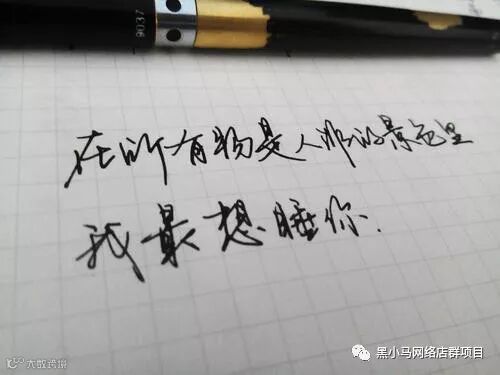 9037
在所有物是人非的景色里
我最想睡你.
大数跨境
黑小马网络店群项目